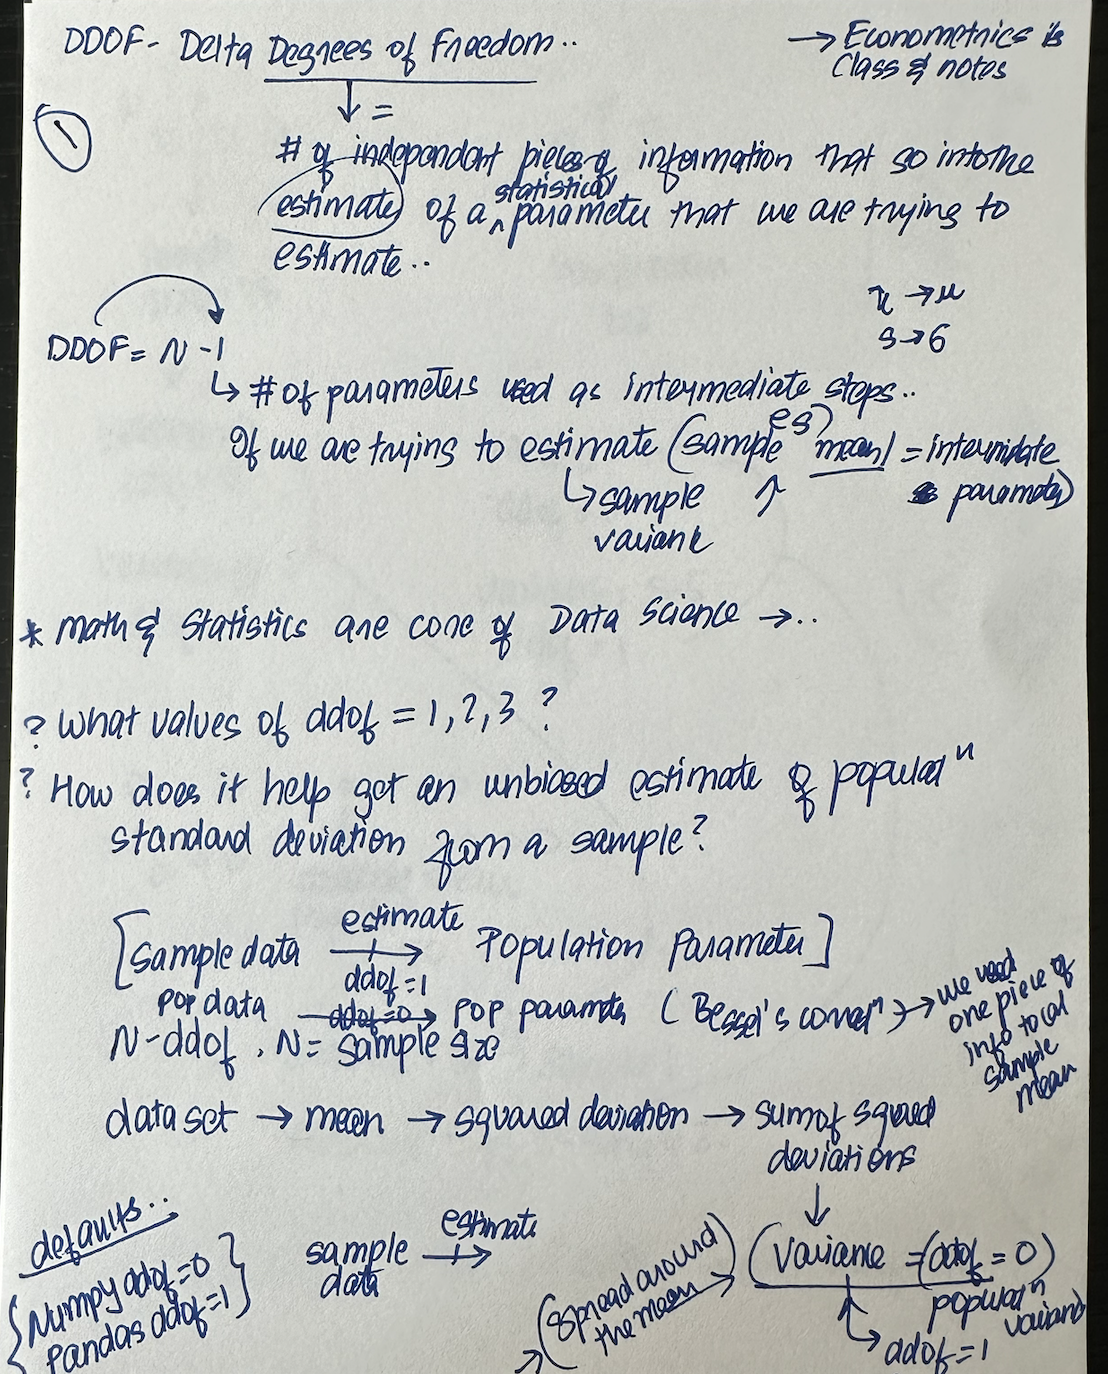 DDOF - Delta Degrees of Freedom..
→ Econometrics is
Class & notes
①
↓ =
# of independant pieces of information that go into the
estimate of a ^statistical parameter that we are trying to
estimate..
x̄ → μ
s → σ
DDOF = N - 1
↳ # of parameters used as intermediate steps..
If we are trying to estimate (sample mean) = intermidate
↳ sample ↑ parameter)
variance
* Math & Statistics are core of Data Science → ..
? What values of ddof = 1, 2, 3 ?
? How does it help get an unbiased estimate of populatⁿ
standard deviation from a sample?
estimate
[Sample data → Population Parameter]
ddof = 1
Pop data ddof=0 → pop paramter (Bessel's correⁿ) → we used
one piece of
info to cal
sample
mean
N - ddof , N = sample size
data set → mean → squared deviation → sum of squared
deviations
↓
defaults..
{Numpy ddof = 0
Pandas ddof = 1}
estimate
sample →
data
(Spread around
the mean) →
(Variance = (ddof = 0)
populatⁿ
variance
↳ ddof = 1